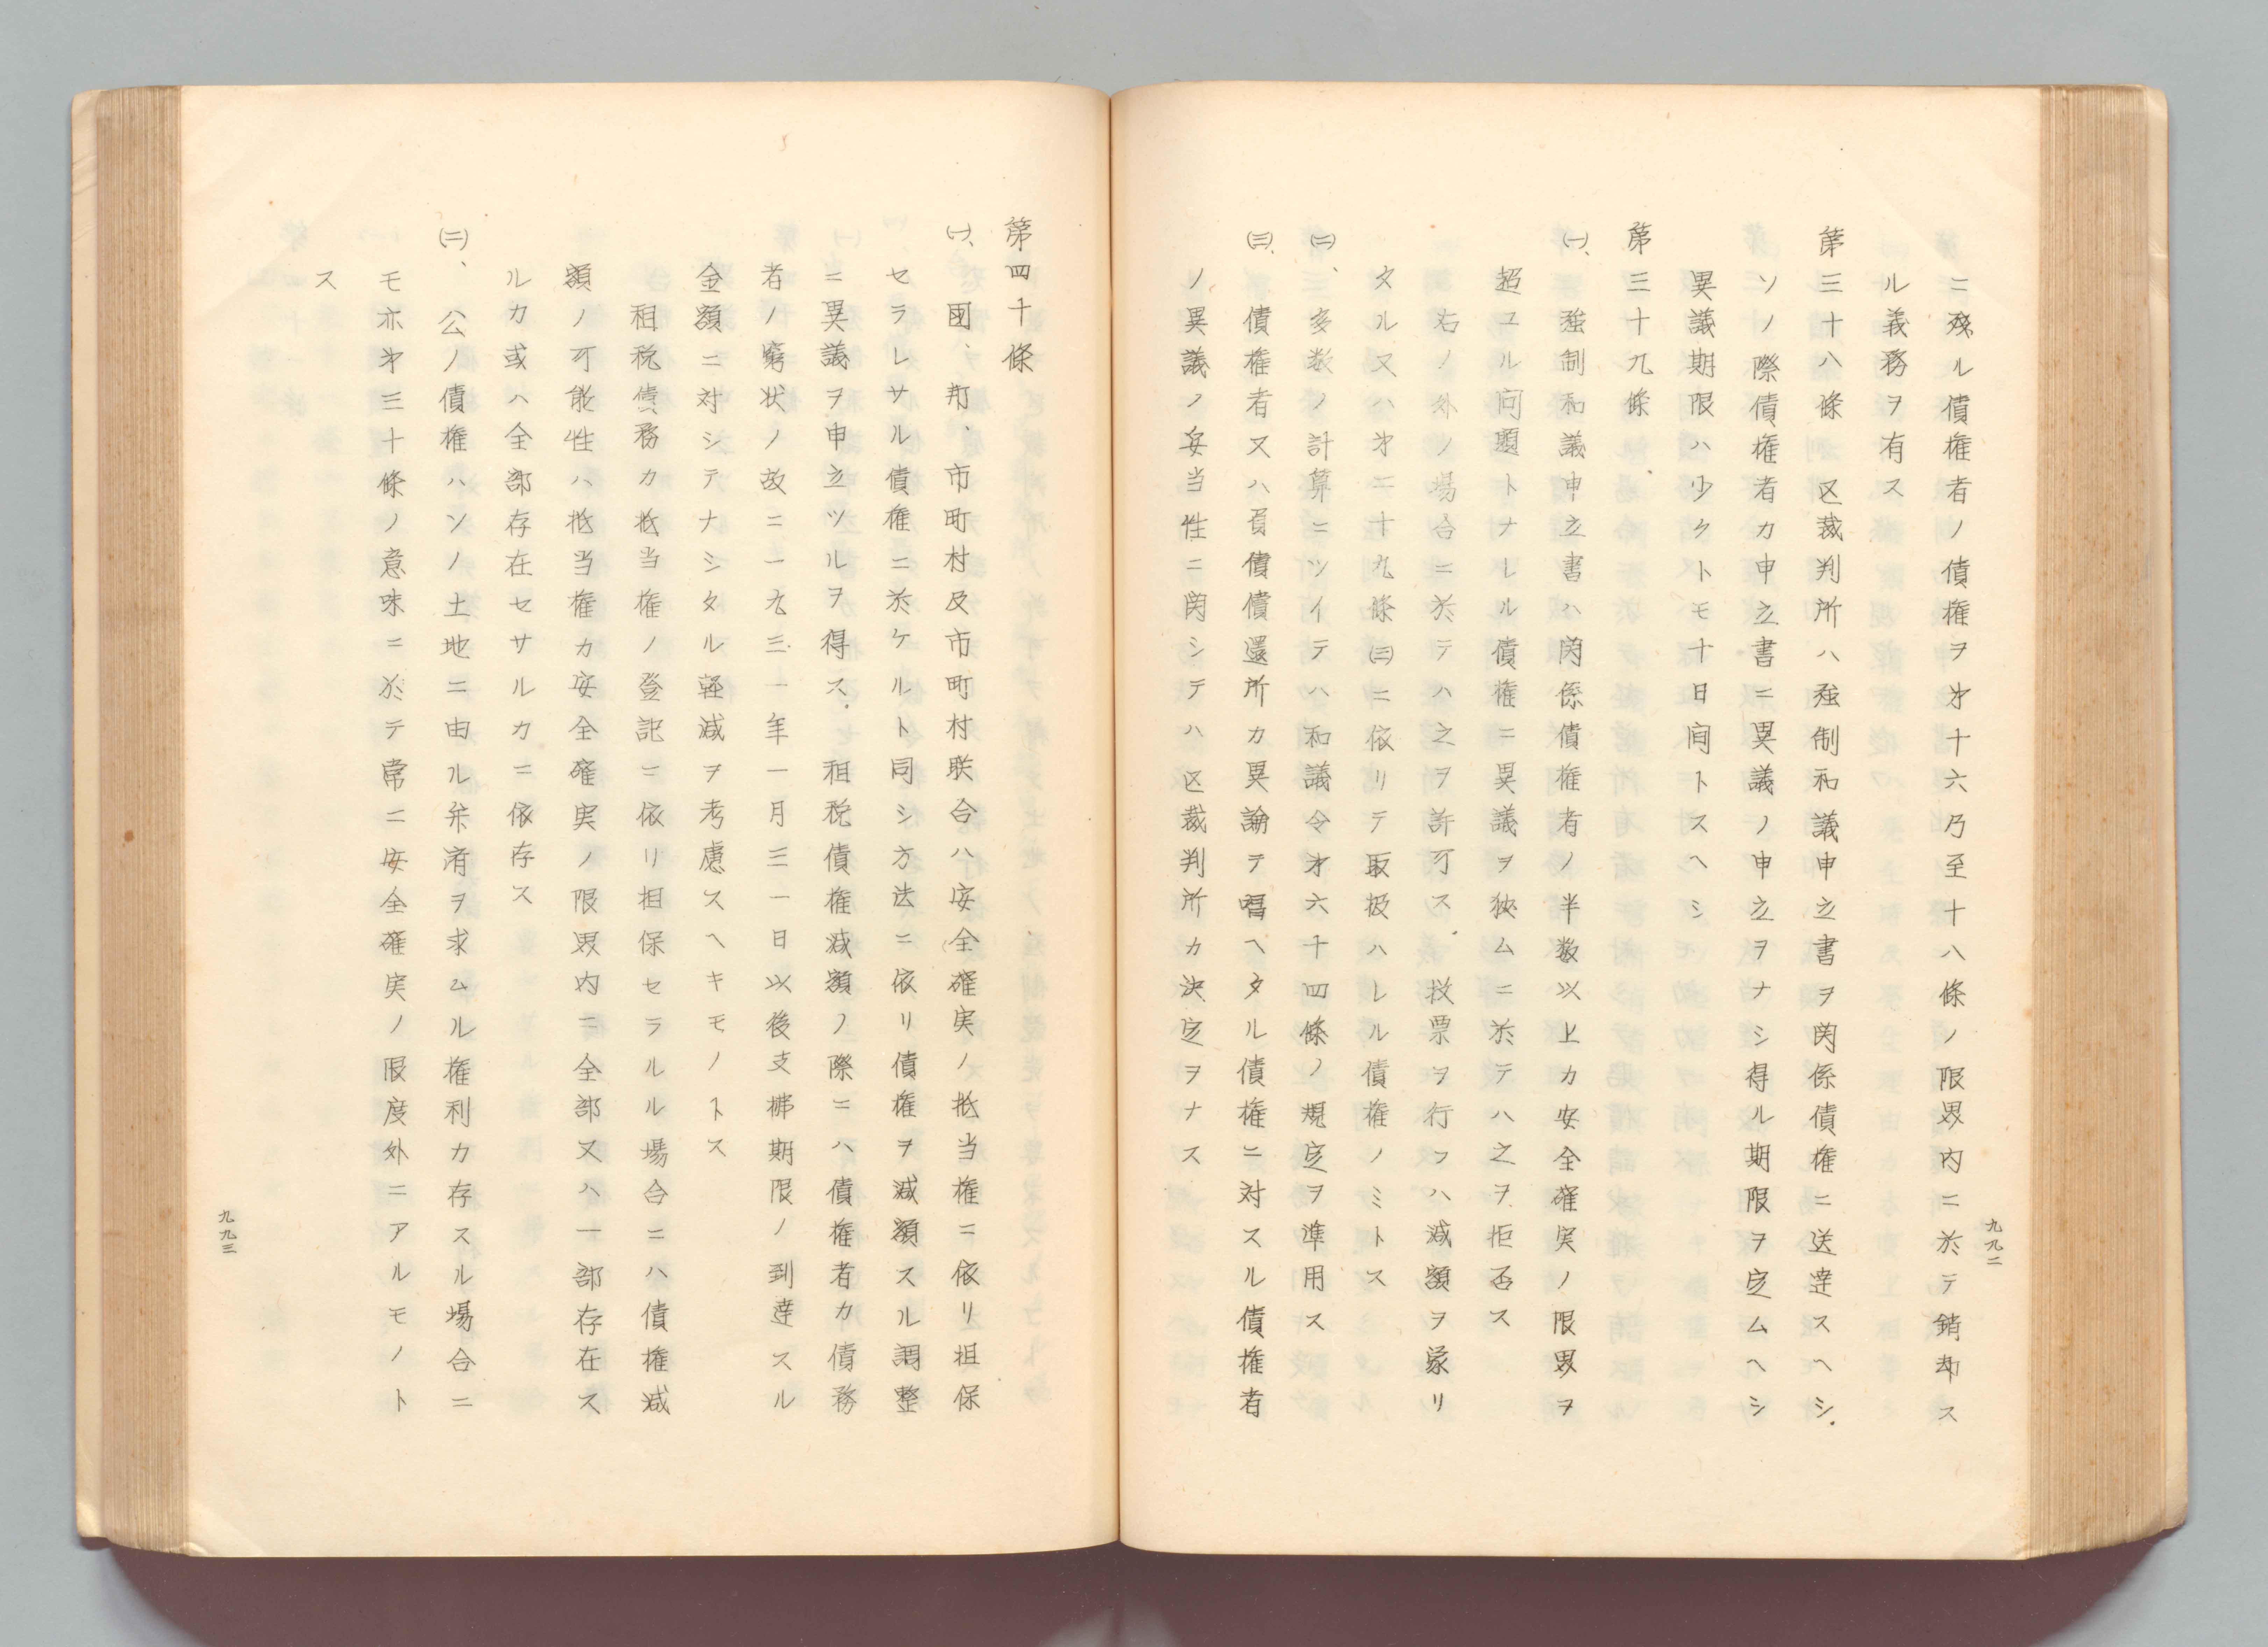 ニ残ル債権者ノ債権ヲ才十六乃至十八條ノ限界内ニ於テ銷却ス
ル義務ヲ有ス
第三十八條　区裁判所ハ強制和議申立書ヲ関係債権ニ送達スヘシ.
ソノ際債権者カ申立書ニ異議ノ申立ヲナシ得ル期限ヲ定ムヘシ
異議期限ハ少クトモ十日間トスヘシ
第三十九條
㈠、強制和議申立書ハ関係債権者ノ半数以上カ安全確実ノ限界ヲ
超ユル問題トナレル債権ニ異議ヲ狹ムニ於テハ之ヲ拒否ス
右ノ外ノ場合ニ於テハ之ヲ許可ス. 投票ヲ行フハ減額ヲ蒙リ
タル又ハ才二十九條㈢ニ依リテ取扱ハレル債権ノミトス
㈡、多数ノ計算ニツイテハ和議令才六十四條ノ規定ヲ準用ス
㈢、債権者又ハ負債償還所カ異論ヲ唱ヘタル債権ニ対スル債権者
ノ異議ノ妥当性ニ関シテハ区裁判所カ決定ヲナス
九九二
第四十條
㈠、国、邦、市町村及市町村联合ハ安全確実ノ抵当権ニ依リ担保
セラレサル債権ニ於ケルト同シ方法ニ依リ債権ヲ減額スル調整
ニ異議ヲ申立ツルヲ得ス. 租税債権減額ノ際ニハ債権者カ債務
者ノ窮状ノ故ニ一九三一年一月三一日以後支拂期限ノ到達スル
金額ニ対シテナシタル軽減ヲ考慮スヘキモノトス
租税債務カ抵当権ノ登記ニ依リ担保セラルル場合ニハ債権減
額ノ可能性ハ抵当権カ安全確実ノ限界内ニ全部又ハ一部存在ス
ルカ或ハ全部存在セサルカニ依存ス
㈡、公ノ債権ハソノ土地ニ由ル弁済ヲ求ムル権利カ存スル場合ニ
モ亦才三十條ノ意味ニ於テ常ニ安全確実ノ限度外ニアルモノト
ス
九九三